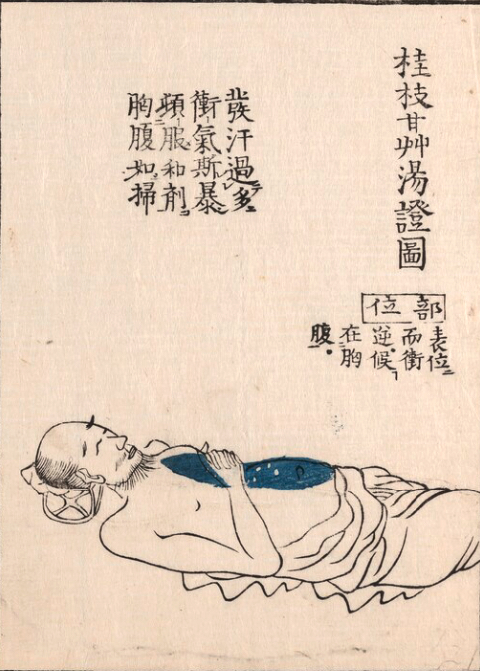 桂枝甘艸湯證圖
部位
表位
而衝
逆候
在胸
腹
發汗過多
衝氣斯暴
頓服和劑
胸腹如掃